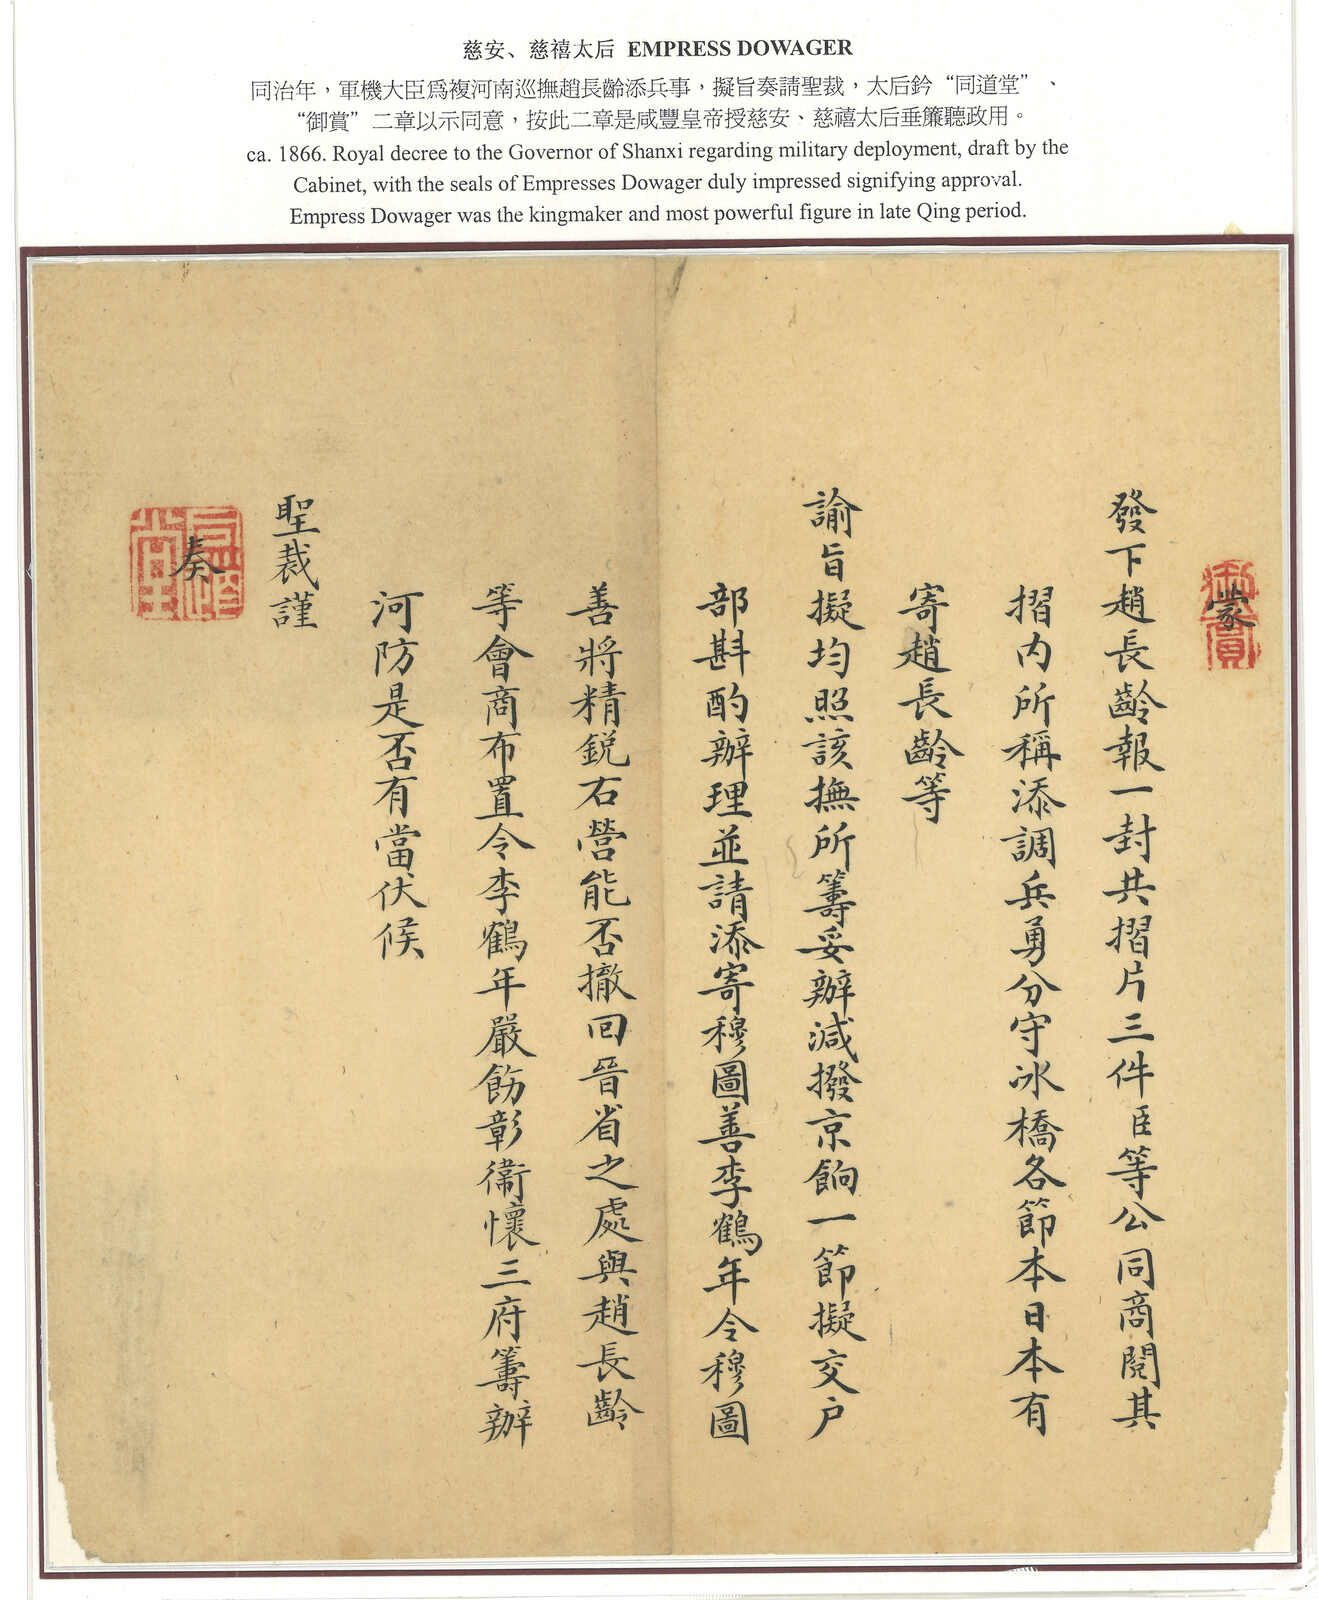 慈安、慈禧太后 EMPRESS DOWAGER
同治年，軍機大臣爲複河南巡撫趙長齡添兵事，擬旨奏請聖裁，太后鈐“同道堂”、
“御賞”二章以示同意，按此二章是咸豐皇帝授慈安、慈禧太后垂簾聽政用。
ca. 1866. Royal decree to the Governor of Shanxi regarding military deployment, draft by the
Cabinet, with the seals of Empresses Dowager duly impressed signifying approval.
Empress Dowager was the kingmaker and most powerful figure in late Qing period.
御賞
蒙
發下趙長齡報一封共摺片三件臣等公同商閱其
摺內所稱添調兵勇分守冰橋各節本日本有
寄趙長齡等
諭旨擬均照該撫所籌妥辦減撥京餉一節擬交户
部斟酌辦理並請添寄穆圖善李鶴年令穆圖
善將精銳右營能否撤回晉省之處與趙長齡
等會商布置令李鶴年嚴飭彰衞懷三府籌辦
河防是否有當伏候
聖裁謹
奏
同道堂